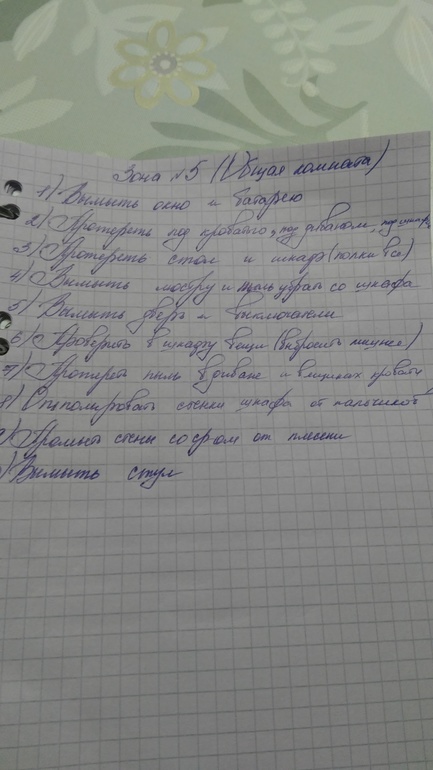 Зона №5 (Общая комната)
1) Вымыть окно и батарею
2) Протереть под кроватью, под диваном, под шкаф
3) Протереть стол и шкаф (полки все)
4) Вымыть люстру и пыль убрать со шкафа
5) Вымыть дверь и выключатели
6) Проверить в шкафу вещи (выбросить лишнее)
7) Протереть пыль в диване и в ящиках кровати
8) Отполировать стенки шкафа от пальчиков
) Промыть стены со от плесени
) Вымыть стул